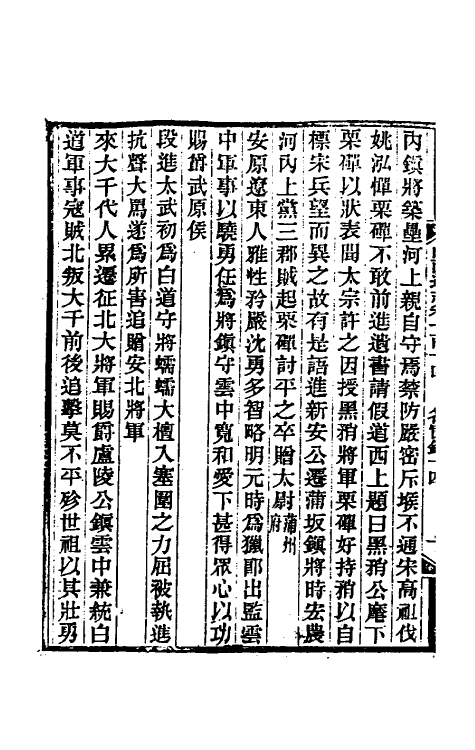 內鎭將築壘河上親自守焉禁防嚴密斥堠不通宋高祖伐
姚泓憚栗磾不敢前進遺書請假道西上題曰黑矟公麾下
栗磾以狀表聞太宗許之因授黑矟將軍栗磾好持矟以自
標宋兵望而異之故有是語進新安公遷蒲坂鎭將時宏農
河內上黨三郡賊起栗磾討平之卒贈太尉蒲州府
安原遼東人雅性矜嚴沈勇多智略明元時爲獵郎出監雲
中軍事以驍勇任爲將鎭守雲中寬和愛下甚得眾心以功
賜爵武原侯
段進太武初爲白道守將蠕蠕大檀入塞圍之力屈被執進
抗聲大罵遂爲所害追贈安北將軍
來大千代人累遷征北大將軍賜爵廬陵公鎭雲中兼統白
道軍事寇賊北叛大千前後追擊莫不平殄世祖以其壯勇